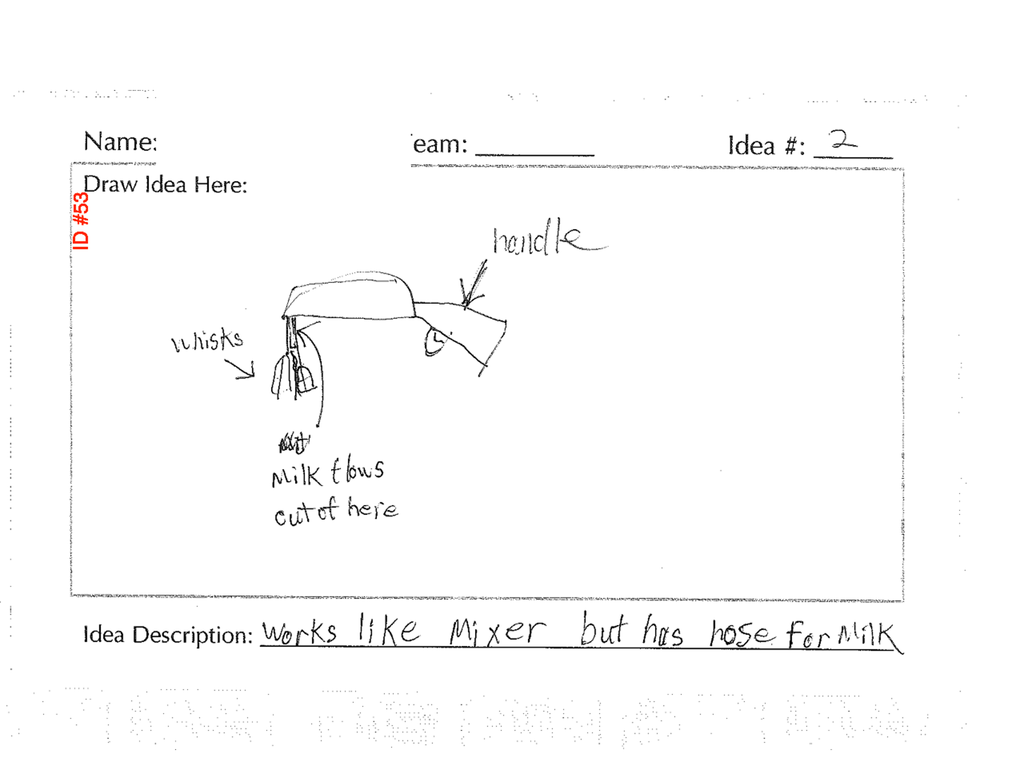 Name:
eam:
Idea #: 2
Draw Idea Here:
ID #53
handle
whisks
Milk flows
out of here
Idea Description: works like Mixer but has hose for Milk